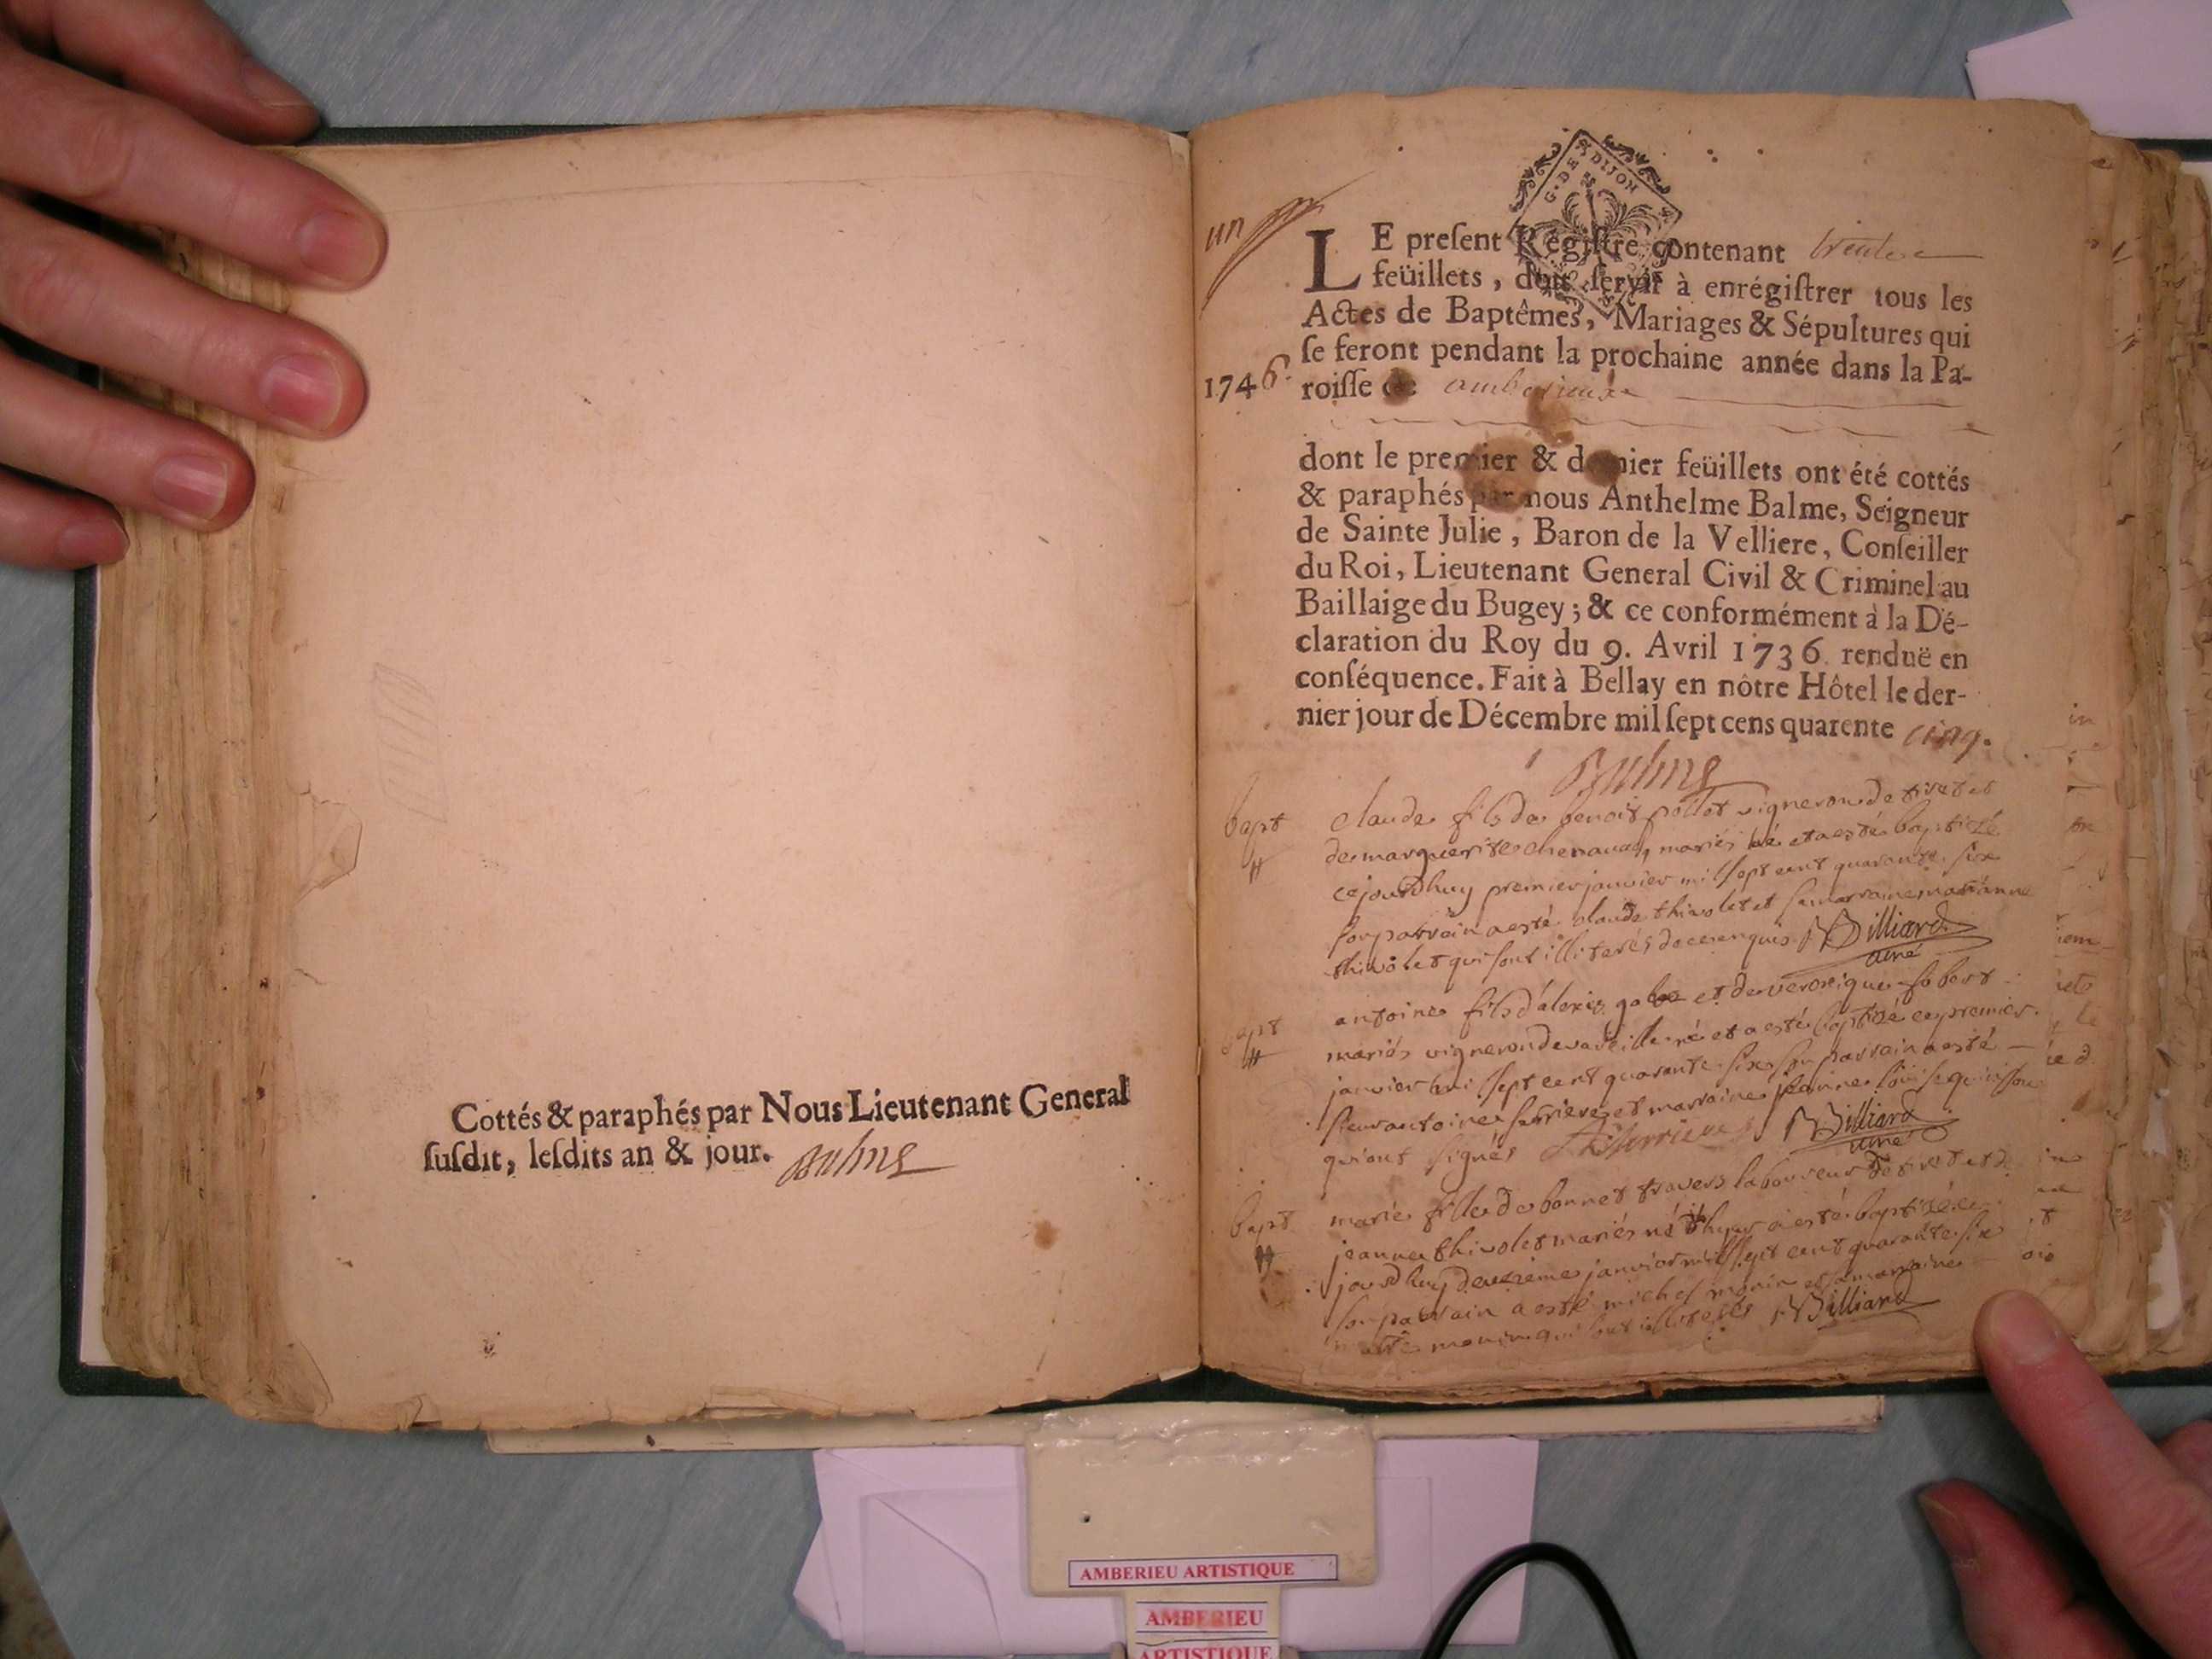 Cottés & paraphés par Nous Lieutenant General
ſuſdit, leſdits an & jour. Balme
un
G. DE DIJON
LE preſent Régiſtre contenant trente
feüillets, doit ſervir à enrégiſtrer tous les
Actes de Baptêmes, Mariages & Sépultures qui
ſe feront pendant la prochaine année dans la Pa-
1746. roiſſe de amberieux
dont le premier & dernier feüillets ont été cottés
& paraphés par nous Anthelme Balme, Seigneur
de Sainte Julie, Baron de la Velliere, Conſeiller
du Roi, Lieutenant General Civil & Criminel au
Baillaige du Bugey; & ce conformément à la Dé-
claration du Roy du 9. Avril 1736. renduë en
conſéquence. Fait à Bellay en nôtre Hôtel le der-
nier jour de Décembre mil ſept cens quarente cinq.
Balme
bapt claude fils de benoit pollet vigneron de tiret et
de marguerite mariés né et a esté baptizé
cejourdhuy premier janvier mil sept cent quarante six
son parrain a esté claude thivolet et sa marraine marianne
thivolet qui sont illiterés de ce enquis Billiard
ainé
bapt antoine fils d'alexis et de veronique
mariés vigneron de vareille né et a esté baptizé ce premier
janvier mil sept cent quarante six son parrain a esté
sieur antoine ferriere et marraine louise
qui ont signés Billiard
ainé
bapt marie fille de bonnet travers laboureur de tiret et de
jeanne thivolet mariés né hyer a esté baptizée ce
jourdhuy deuxieme janvier mil sept cent quarante six
son parrain a esté michel monin et sa marraine
monin qui sont illiterés Billiard
AMBERIEU ARTISTIQUE
AMBERIEU
ARTISTIQUE